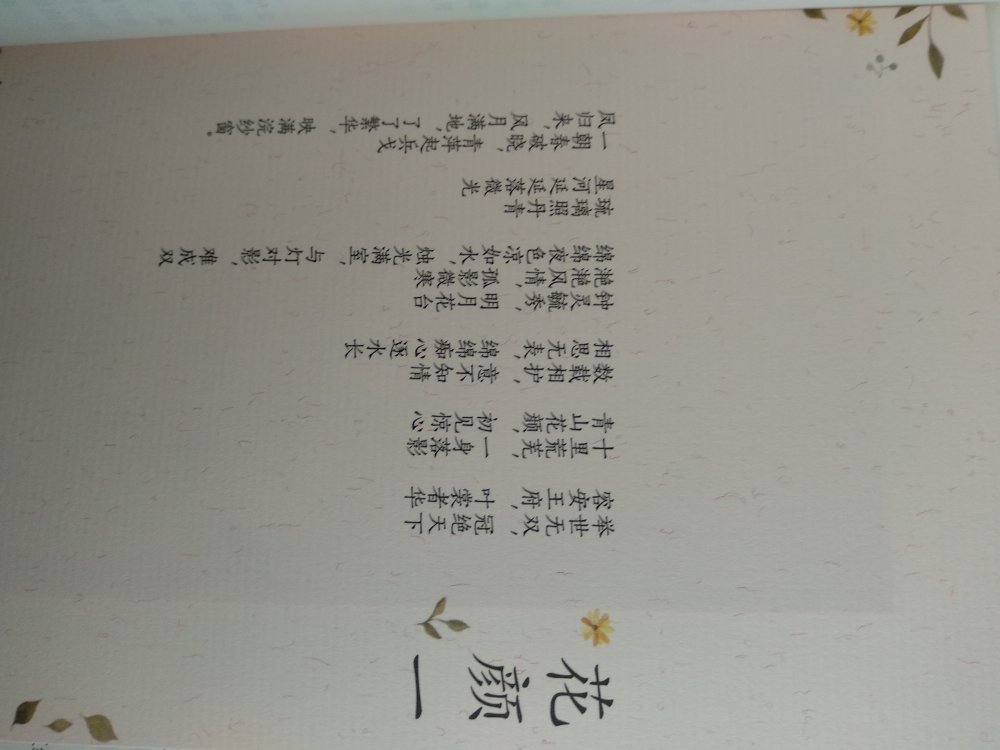 花颜一
举世无双，冠绝天下
容安王府，叶裳者华
十里荒芜，一身落影
青山花颜，初见惊心
数载相护，意不知情
相思无表，绵绵痴心逐水长
钟灵毓秀，明月花台
滟滟风情，孤影微寒
绵绵夜色凉如水，烛光满室，与灯对影，难成双
琉璃照丹青
星河延延落微光
一朝春破晓，青萍起兵戈
凤归来，风月满地，了了繁华，映满浣纱窗。